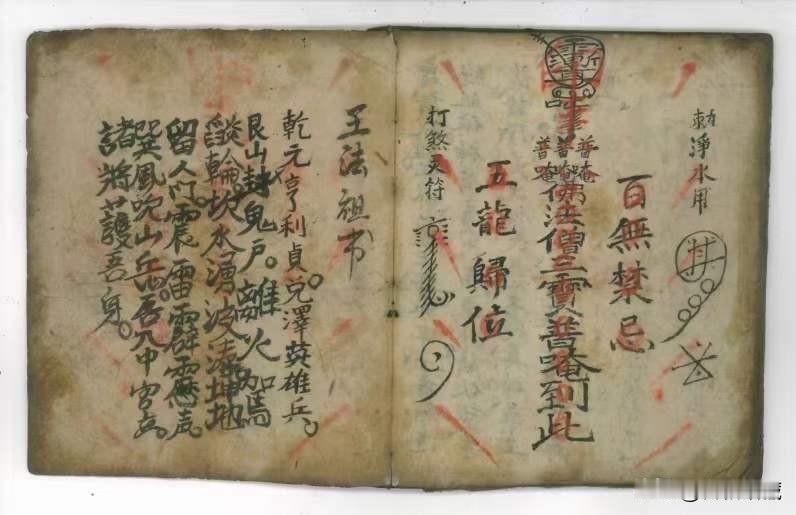 勅淨水用
百無禁忌
普唵
普唵
普唵
佛法僧三寶普唵到此
五龍歸位
打煞天符
王法祖帀
乾元亨利貞。兌澤英雄兵。
艮山封鬼戶。離火駕
輪坎水湧波濤坤地
留人门震雷霹靂声
巽風吹山岳。吾入中宮立。
諸將護吾身。